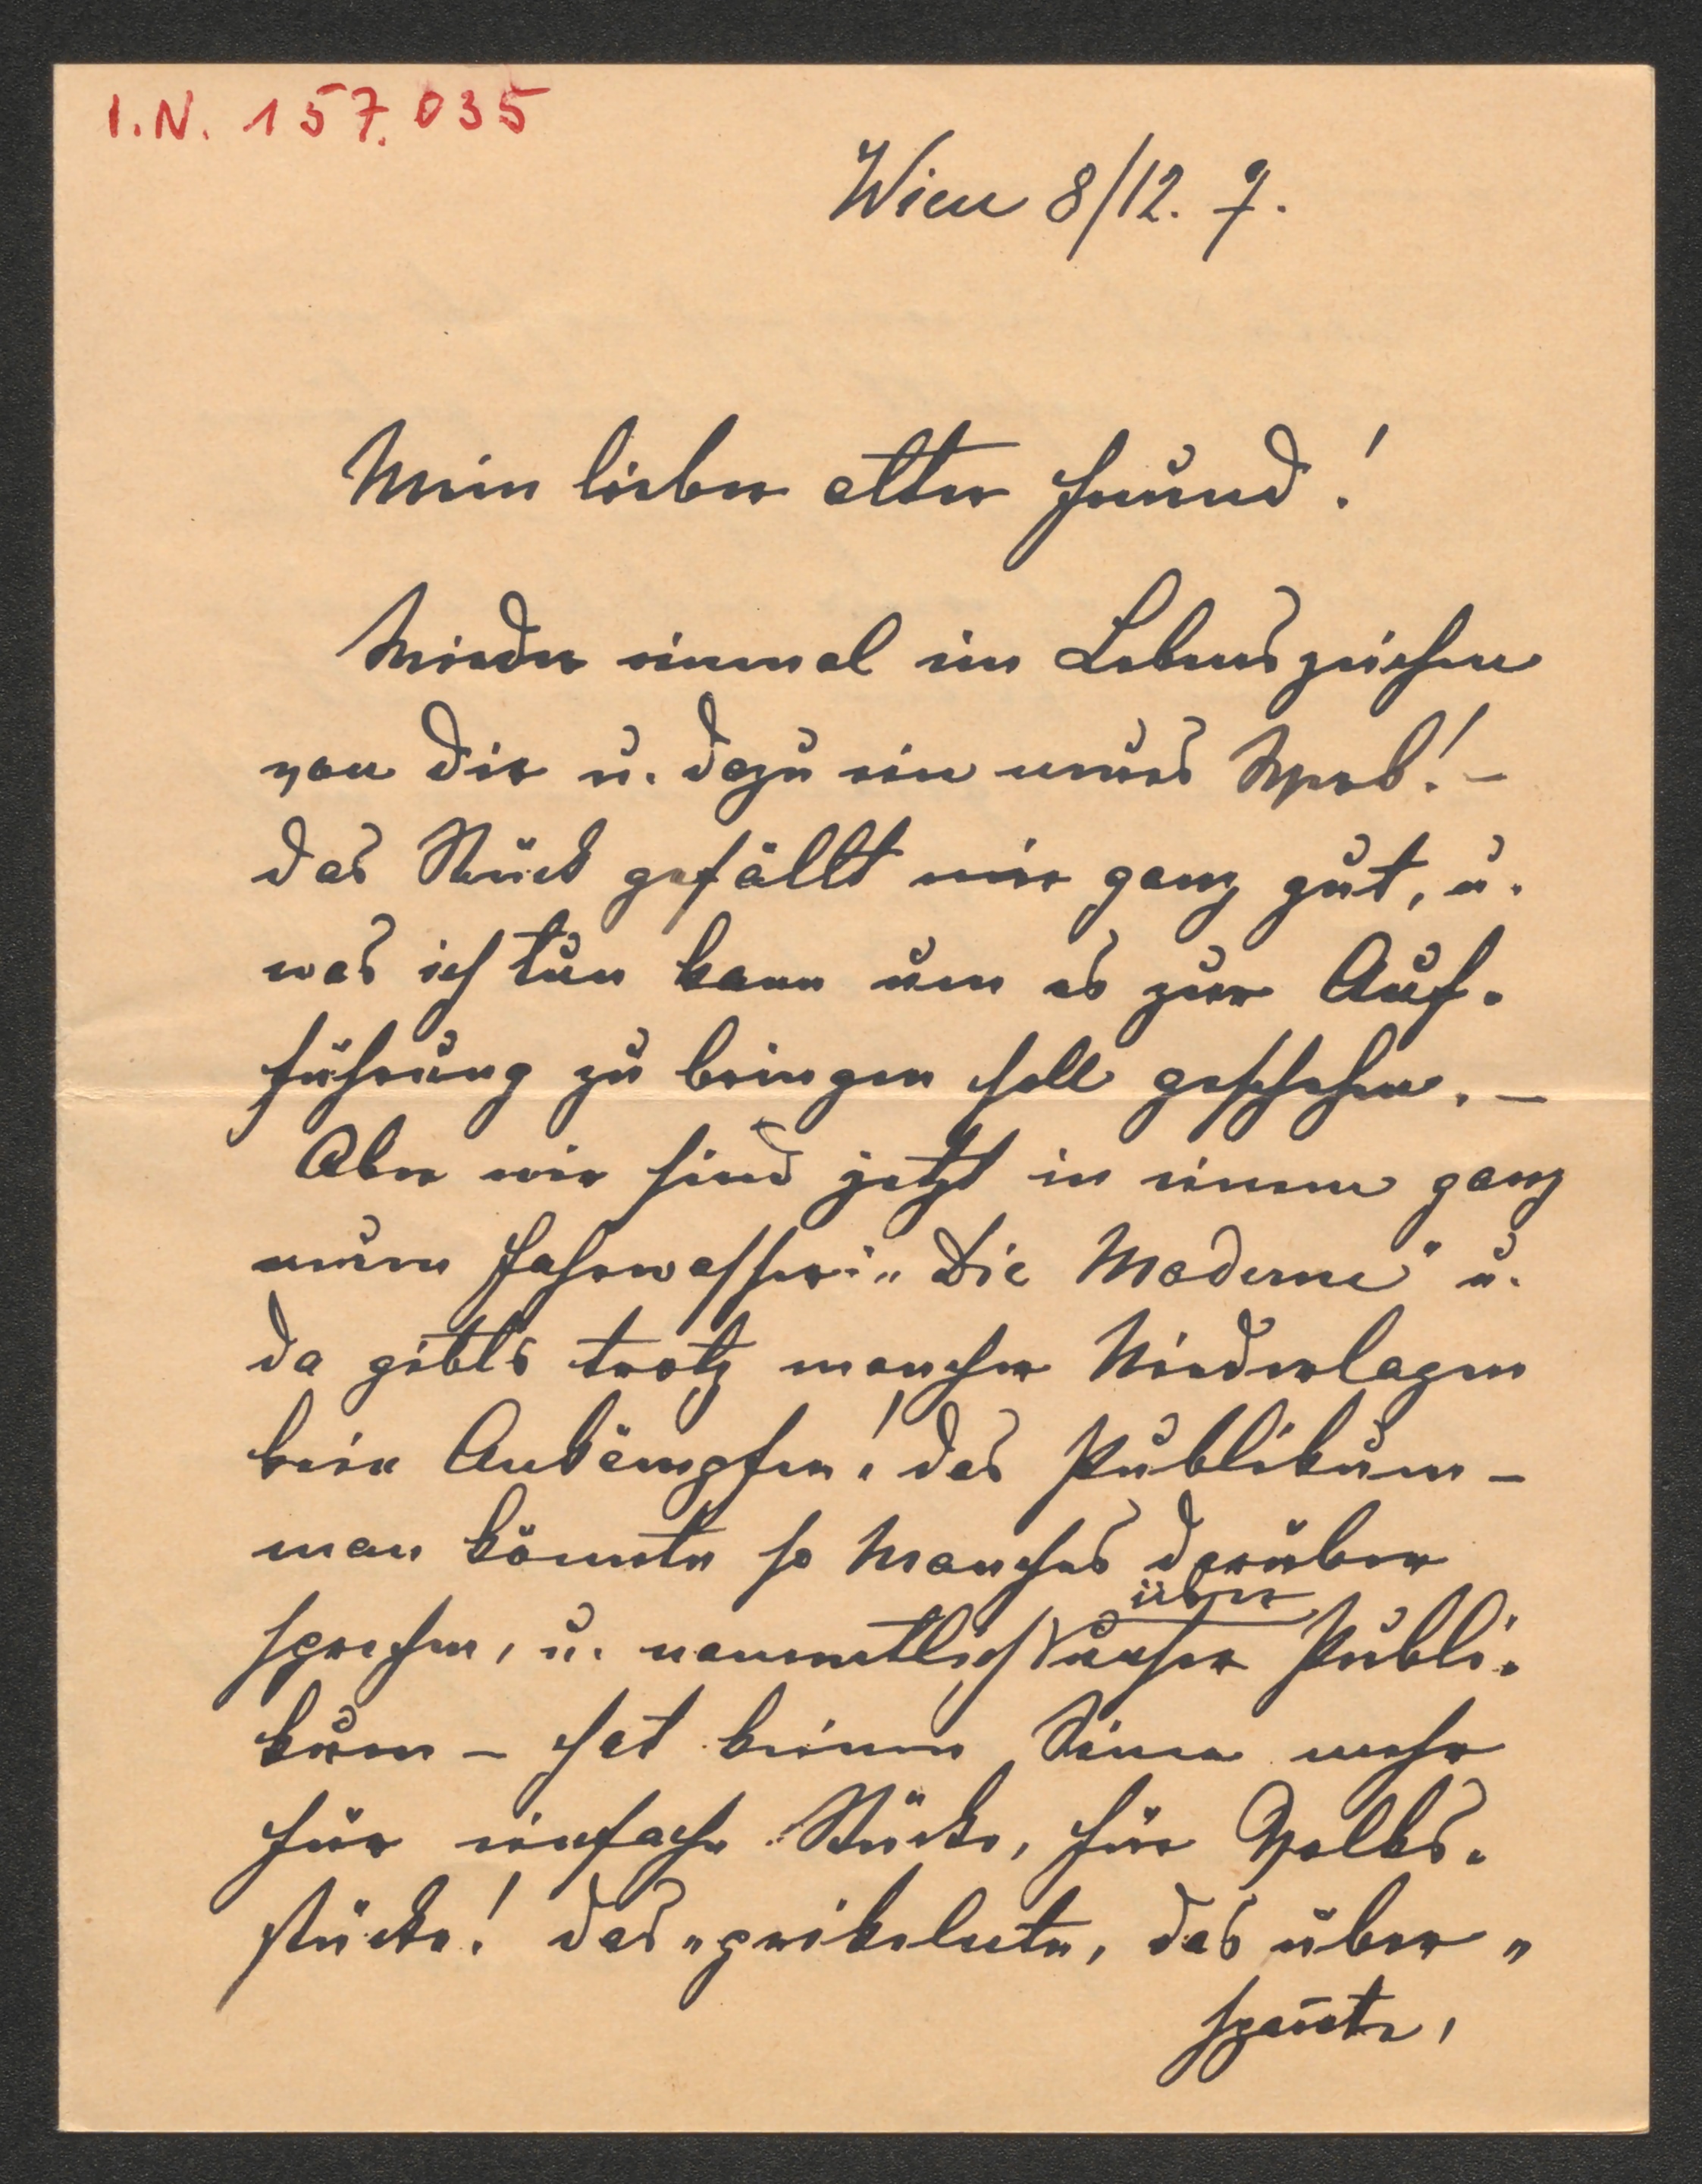 I.N. 157.035
Wien 8/12. 7.
Mein lieber alter Freund!
Wieder einmal ein Lebenszeichen
von Dir u. dazu ein neues Werk! –
Das Stück gefällt mir ganz gut, u.
was ich tun kann um es zur Auf-
führung zu bringen soll geschehen. –
Aber wir sind jetzt in einem ganz
neuen Fahrwasser: „Die Moderne" u.
da gibt's trotz mancher Niederlagen
kein Ankämpfen! Das Publikum –
man könnte so Manches darüber
sprechen, u. namentlich über unser Publi-
kum – hat keinen Sinn mehr
für einfache Stücke, für Volks-
stücke! Das „prikelnte, das über-
span̄te,